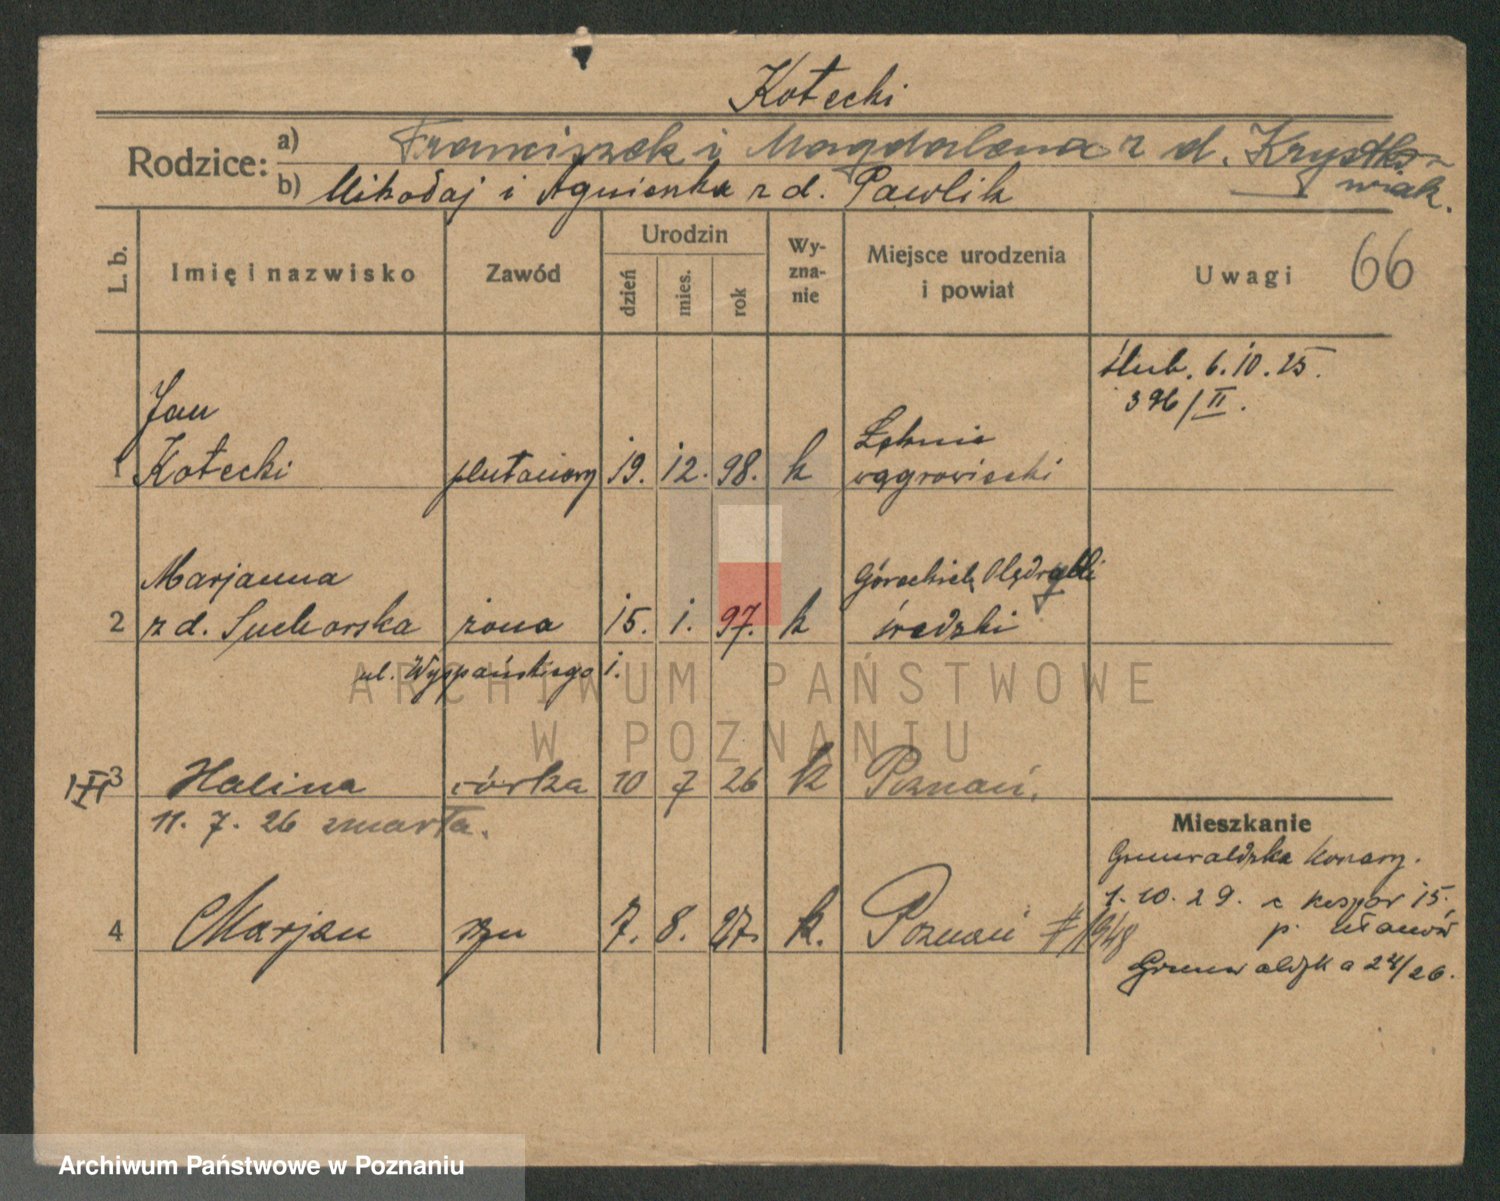 Kotecki
Rodzice:
a) Franciszek i Magdalena z d. Krystko-
wiak.
b) Mikołaj i Agnieszka z d. Pawlik
66
L. b.
Imię i nazwisko
Zawód
Urodzin
dzień
mies.
rok
Wy-
zna-
nie
Miejsce urodzenia
i powiat
Uwagi
ślub. 6.10.25.
396/II.
Jan
1 Kotecki plutonowy 19. 12. 98. k
Łękno
wągrowiecki
Marjanna
2 z d. Suchorska żona 15. 1. 97. k
Góreckich Olędry
średzki
ul. Wyspiańskiego 1.
3 Halina córka 10 7 26 k Poznań.
11. 7. 26 zmarła.
4 Marjan syn 7. 8. 27. k. Poznań
Mieszkanie
Grunwaldzka
1.10.29. 15.
p. ułanów
Grunwaldzka 24/26.
ARCHIWUM PAŃSTWOWE
W POZNANIU
Archiwum Państwowe w Poznaniu